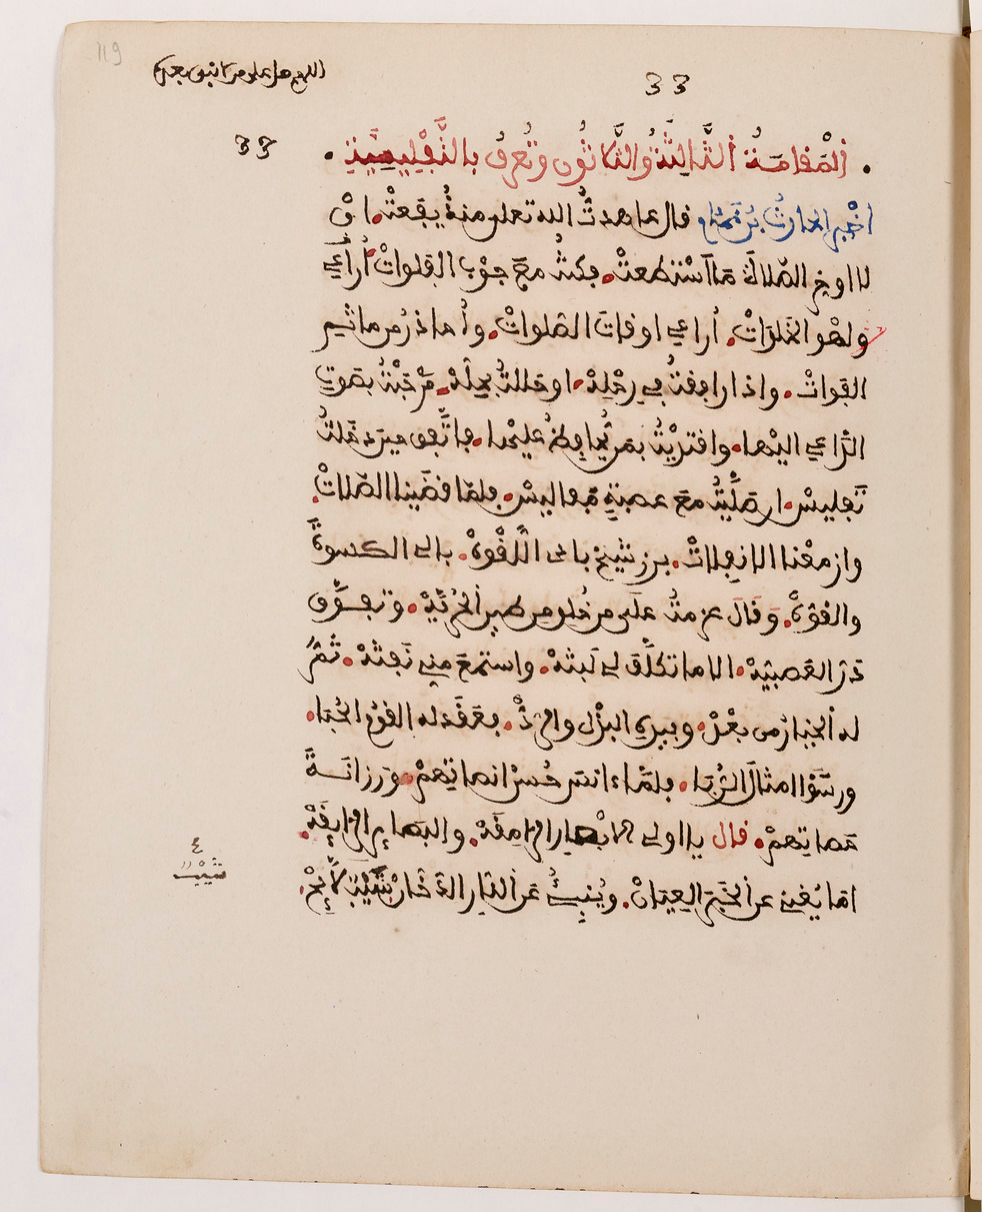 119
اللهم صل على من لا نبي بعده
33
33
المقامة الثالثة والثلاثون وتعرف بالتفليسية
أخبر الحارث بن همام قال عاهدت الله تعلى منذ يفعت. ان
لا اوخر الصلاة ما استطعت. فكنت مع جوب الفلوات أراعي
ولهو الخلوات. أراعي اوقات الصلوات. وأحاذر من ماثم
الفوات. واذا رافقت في رحلة. او حللت بحلة. مرحبت بصوت
الداعي اليها. واقتديت بمن يحافظ عليها. فاتفق حين دخلت
تفليس. ان صليت مع عصبة مفاليس. فلما قضينا الصلات
وازمعنا الانفلات. برز شيخ بادى اللقوة. بالى الكسوة
والقوة. وقال عزمت على من خلق من طين الحرية. وتفوق
در العصبية. الا ما تكلف لي لبثة. واستمع مني نفثة. ثم
له الخيار من بعد. وبيده البذل والرد. فعقد له القوم الحبا.
ورسوا امثال الربا. فلما ءانس حسن انصاتهم. ورزانة
حصاتهم. قال يا اولى الابصار الرامقة. والبصاير الرايقة.
اما يغني عن الخبر العيان. وينبئ عن النار الدخان شيب لائح.
٤
شيب